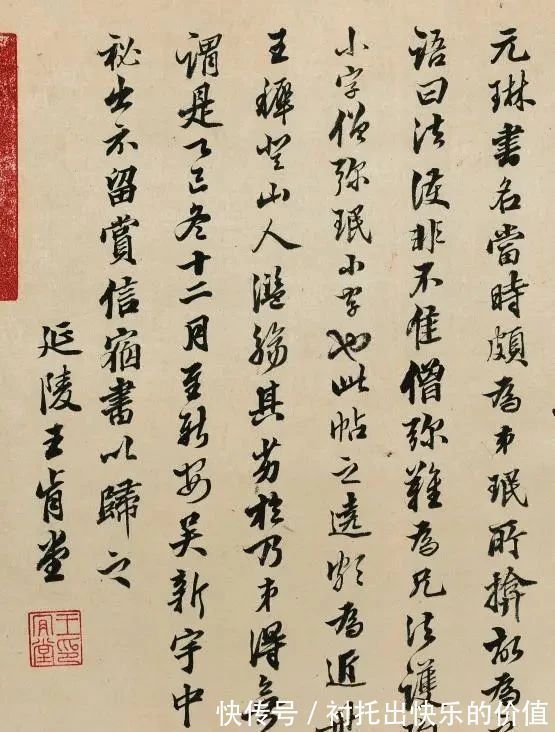 元琳書名當時頗為弟珉所揜故為
語曰法護非不佳僧彌難為兄法護
小字僧彌珉小字也此帖之遠頗為近
王穉登山人濫觴其劣於乃弟得
謂是乙巳冬十二月至新安吳新宇中
祕出示留賞信宿書以歸之
延陵王肯堂
王肯堂印
快传号/衬托出快乐的价值